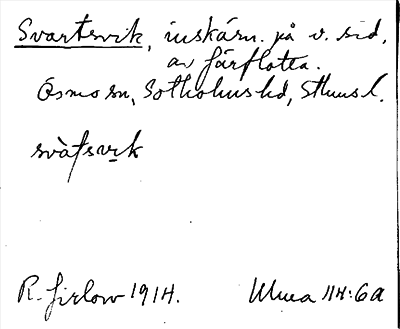 Svartsvik, inskärn. på v. sid.
av Järflotta.
Ösmo sn, Sotholms hd, Sthms l.
svàtsvik
R. Jirlow 1914. Ulma 114:6a